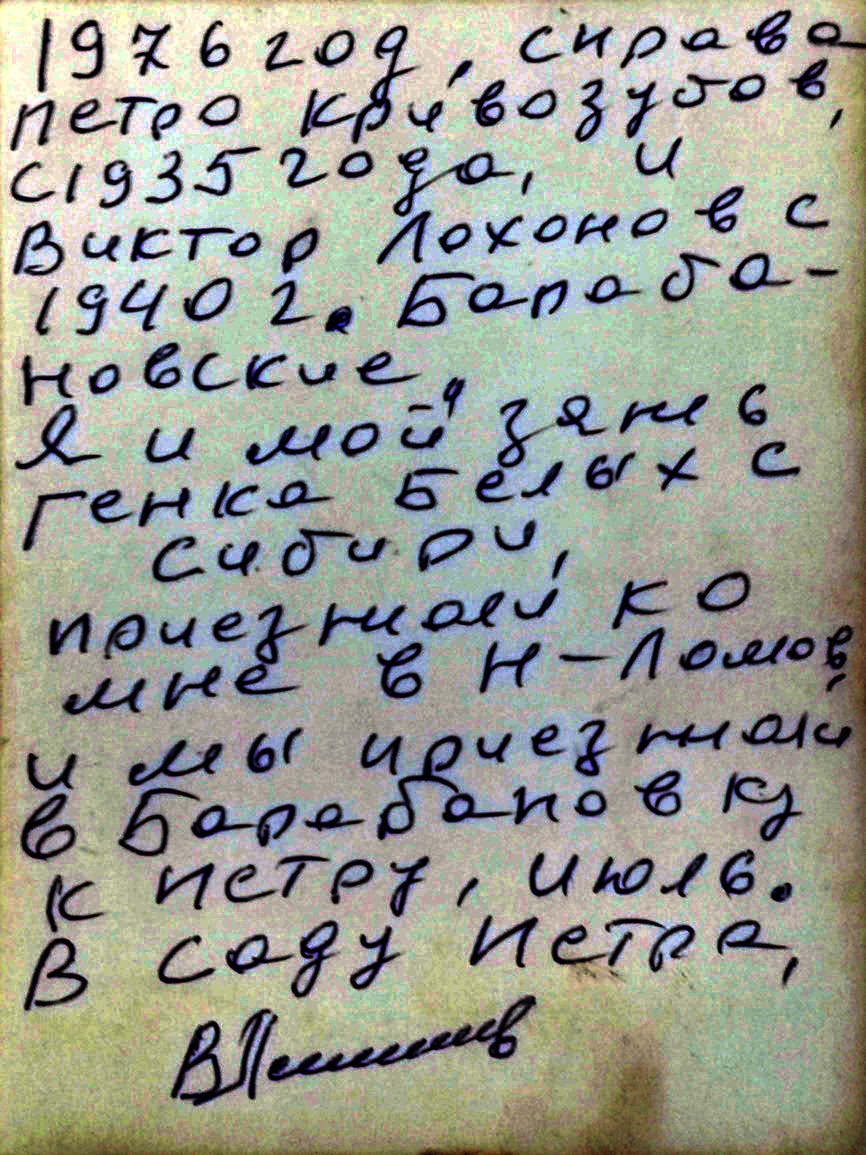 1976 год, справа
Петро Кривозубов,
с 1935 года, и
Виктор Лохонов с
1940 г. Бараба-
новские,
Я и мой зять
Генка Белых с
Сибири,
приезжали ко
мне в Н-Ломов,
и мы приезжали
в Барабановку
к Петру, июль.
В саду Петра,